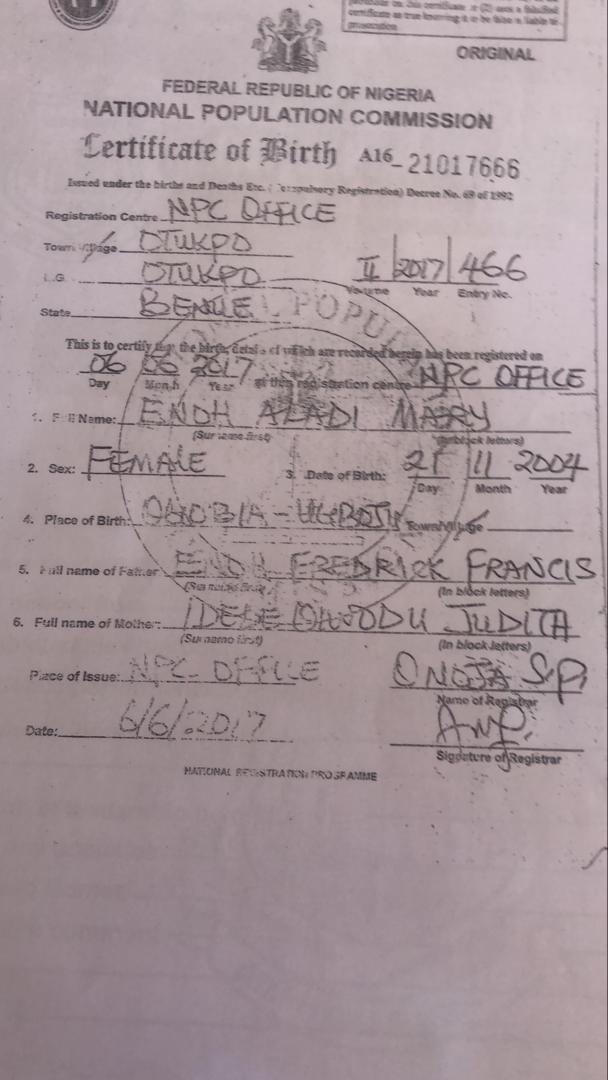 certificate as true knowing it to be false is liable to
prosecution
ORIGINAL
FEDERAL REPUBLIC OF NIGERIA
NATIONAL POPULATION COMMISSION
Certificate of Birth A16_21017666
Issued under the births and Deaths Etc. (Compulsory Registration) Decree No. 69 of 1992
Registration Centre NPC OFFICE
Town/Village OTUKPO
L.G. OTUKPO II 2017 466
Volume Year Entry No.
State BENUE
POPUL
This is to certify that the birth, details of which are recorded herein has been registered on
06 06 2017 at this registration centre NPC OFFICE
Day Month Year
1. Full Name: ENOH ALADI MARY
(Surname first) (In block letters)
2. Sex: FEMALE 3. Date of Birth: 21 11 2004
Day Month Year
4. Place of Birth: Town/Village
5. Full name of Father ENOH FREDRICK FRANCIS
(Surname first) (In block letters)
6. Full name of Mother: JUDITH
(Surname first) (In block letters)
Place of Issue: NPC OFFICE ONOJA S.P.
Name of Registrar
Date: 6/6/2017
Signature of Registrar
NATIONAL REGISTRATION PROGRAMME